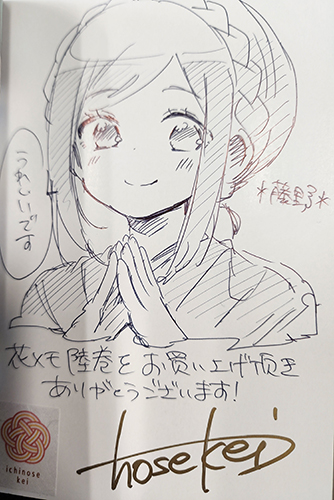 うれしいです
*藤野*
花メモ陸巻をお買い上げ頂き
ありがとうございます!
ichinose
kei
hosekei